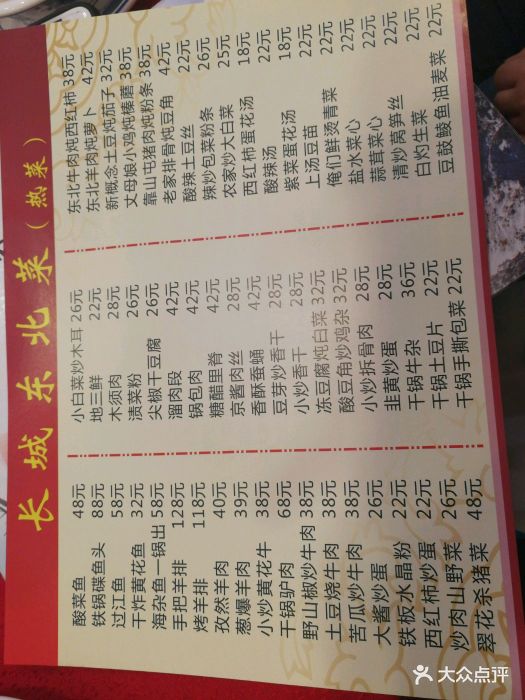 长城东北菜（热菜）
酸菜鱼 48元
铁锅碟鱼头 88元
过江鱼 58元
干炸黄花鱼 32元
海杂鱼一锅出 58元
手把羊排 128元
烤羊排 118元
孜然羊肉 40元
葱爆羊肉 39元
小炒黄花牛 38元
干锅驴肉 68元
野山椒炒牛肉 38元
土豆烧牛肉 38元
苦瓜炒牛肉 38元
大酱炒蛋 26元
铁板水晶粉 22元
西红柿炒蛋 22元
炒肉山野菜 26元
翠花杀猪菜 48元
小白菜炒木耳 26元
地三鲜 22元
木须肉 28元
渍菜粉 26元
尖椒干豆腐 26元
溜肉段 42元
锅包肉 42元
糖醋里脊 42元
京酱肉丝 28元
香酥蚕蛹 42元
豆芽炒香干 28元
小炒香干 28元
冻豆腐炖白菜 32元
酸豆角炒鸡杂 32元
小炒拆骨肉 28元
韭黄炒蛋 28元
干锅牛杂 36元
干锅土豆片 22元
干锅手撕包菜 22元
东北牛肉炖西红柿 38元
东北羊肉炖萝卜 42元
新概念土豆炖茄子 32元
丈母娘小鸡炖榛蘑 38元
靠山屯猪肉炖粉条 38元
老家排骨炖豆角 42元
酸辣土豆丝 22元
辣炒包菜粉条 26元
农家炒大白菜 25元
西红柿蛋花汤 18元
酸辣汤 22元
紫菜蛋花汤 18元
上汤豆苗 22元
俺们鲜烫青菜 22元
盐水菜心 22元
蒜茸菜心 22元
清炒莴笋丝 22元
白灼生菜 22元
豆鼓鲮鱼油麦菜 22元
大众点评